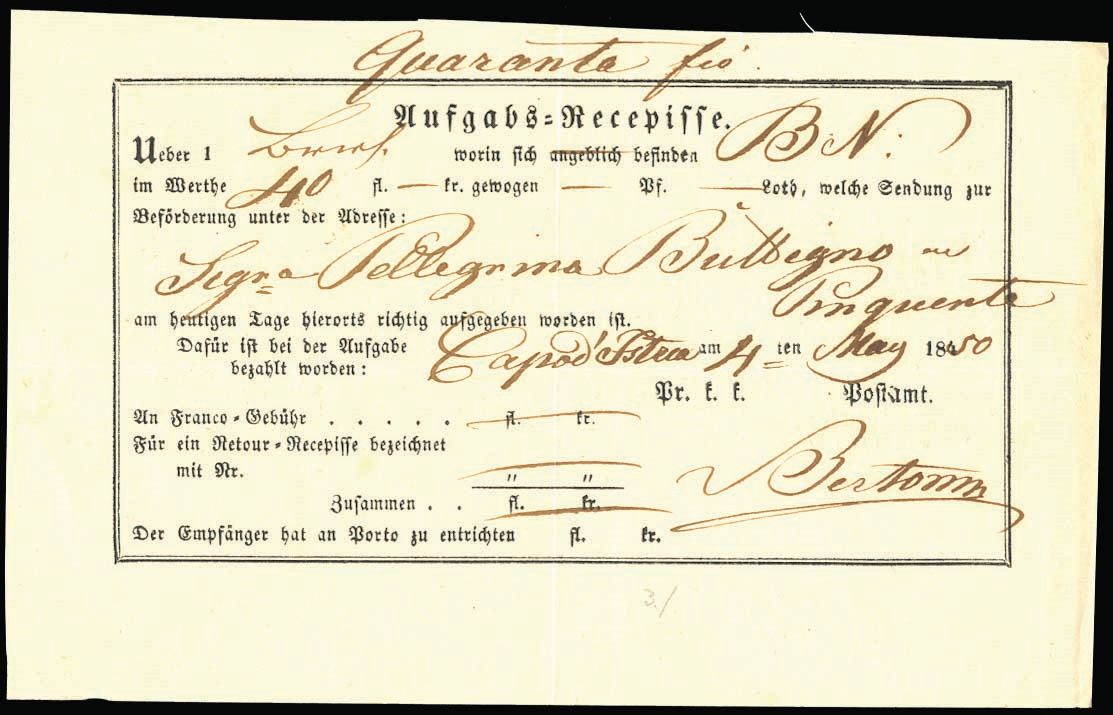 Quaranta fio
Aufgabs-Recepisse.
Ueber 1 Brief. worin sich angeblich befinden BN:
im Werthe 40 fl. — kr. gewogen — Pf. — Loth, welche Sendung zur
Beförderung unter der Adresse:
Segra Pellegrina
Pinquente
am heutigen Tage hierorts richtig aufgegeben worden ist.
Dafür ist bei der Aufgabe Capod'Istria am 4 ten May 1850
bezahlt worden:
Pr. k. k. Postamt.
An Franco-Gebühr . . . . . fl. kr.
Für ein Retour-Recepisse bezeichnet
mit Nr. " "
Zusammen . . fl. kr.
Der Empfänger hat an Porto zu entrichten fl. kr.
3./